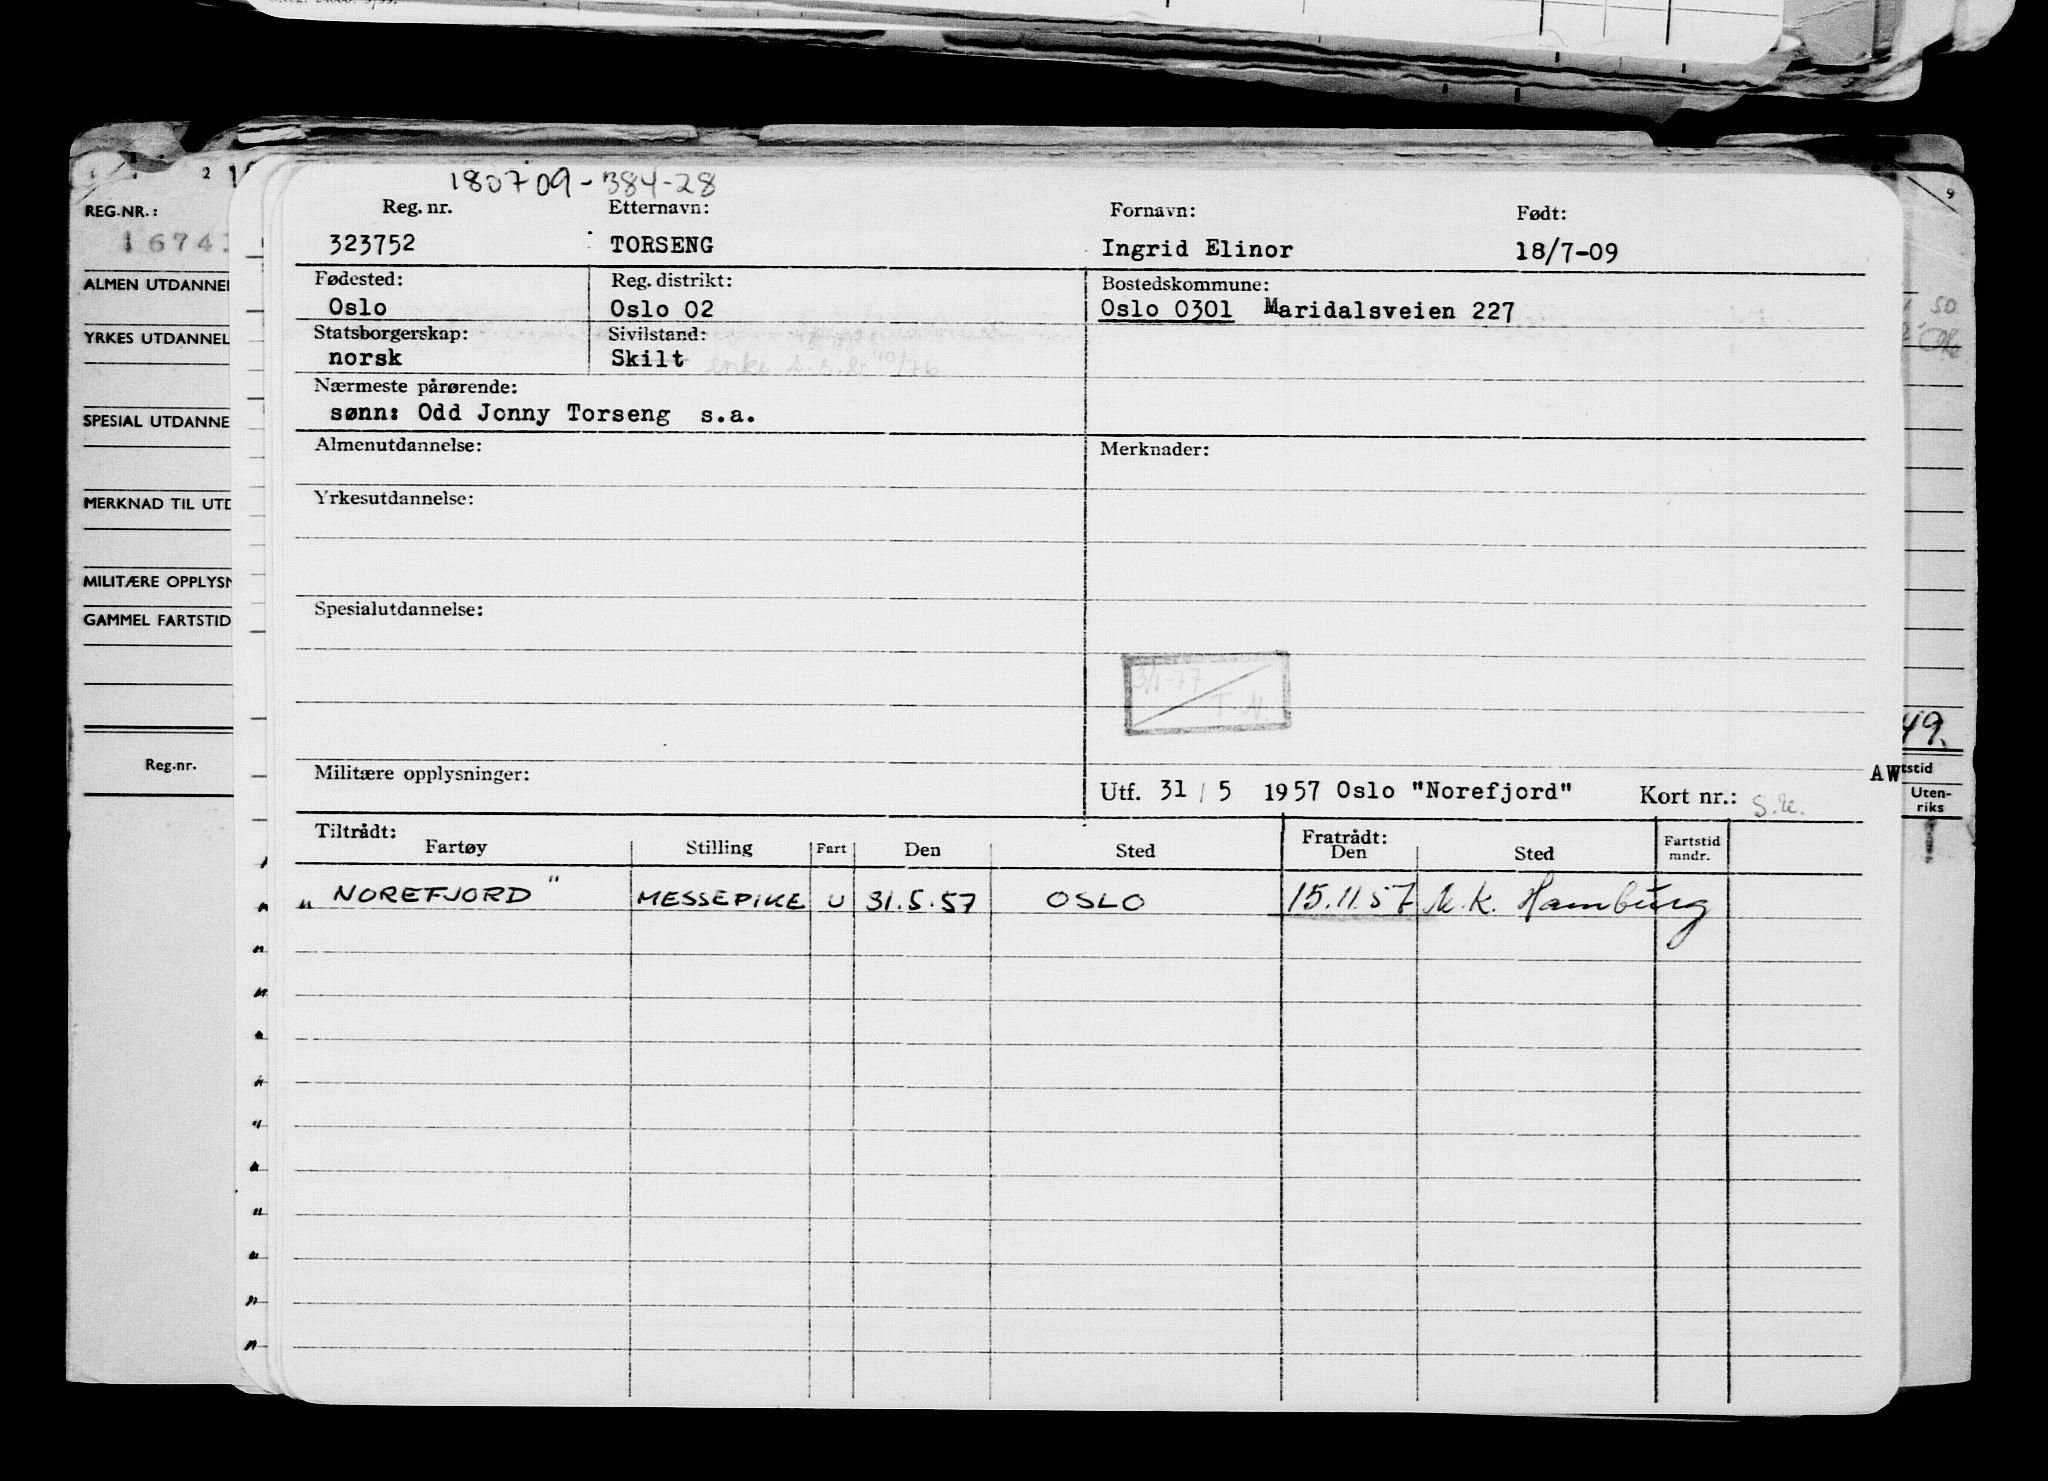 2
180709-384-28
REG.NR.:
Reg. nr. Etternavn: Fornavn: Født:
323752 TORSENG Ingrid Elinor 18/7-09
ALMEN UTDANNE
Fødested: Reg. distrikt: Bostedskommune:
Oslo Oslo 02 Oslo 0301 Maridalsveien 227
50
YRKES UTDANNEL
Statsborgerskap: Sivilstand:
norsk Skilt
enke 76
Nærmeste pårørende:
sønn: Odd Jonny Torseng s.a.
SPESIAL UTDANNE
Almenutdannelse: Merknader:
MERKNAD TIL UTD
Yrkesutdannelse:
MILITÆRE OPPLYSN
GAMMEL FARTSTID
Spesialutdannelse:
3/1-77
T.N.
49.
Reg.nr.
Militære opplysninger:
Utf. 31 / 5 1957 Oslo "Norefjord" Kort nr.:
AW
tstid
Uten-
riks
Tiltrådt: Fratrådt:
Fartøy Stilling Fart Den Sted Den Sted Fartstid
mndr.
"NOREFJORD" MESSEPIKE U 31.5.57 OSLO 15.11.57 M.k. Hamburg